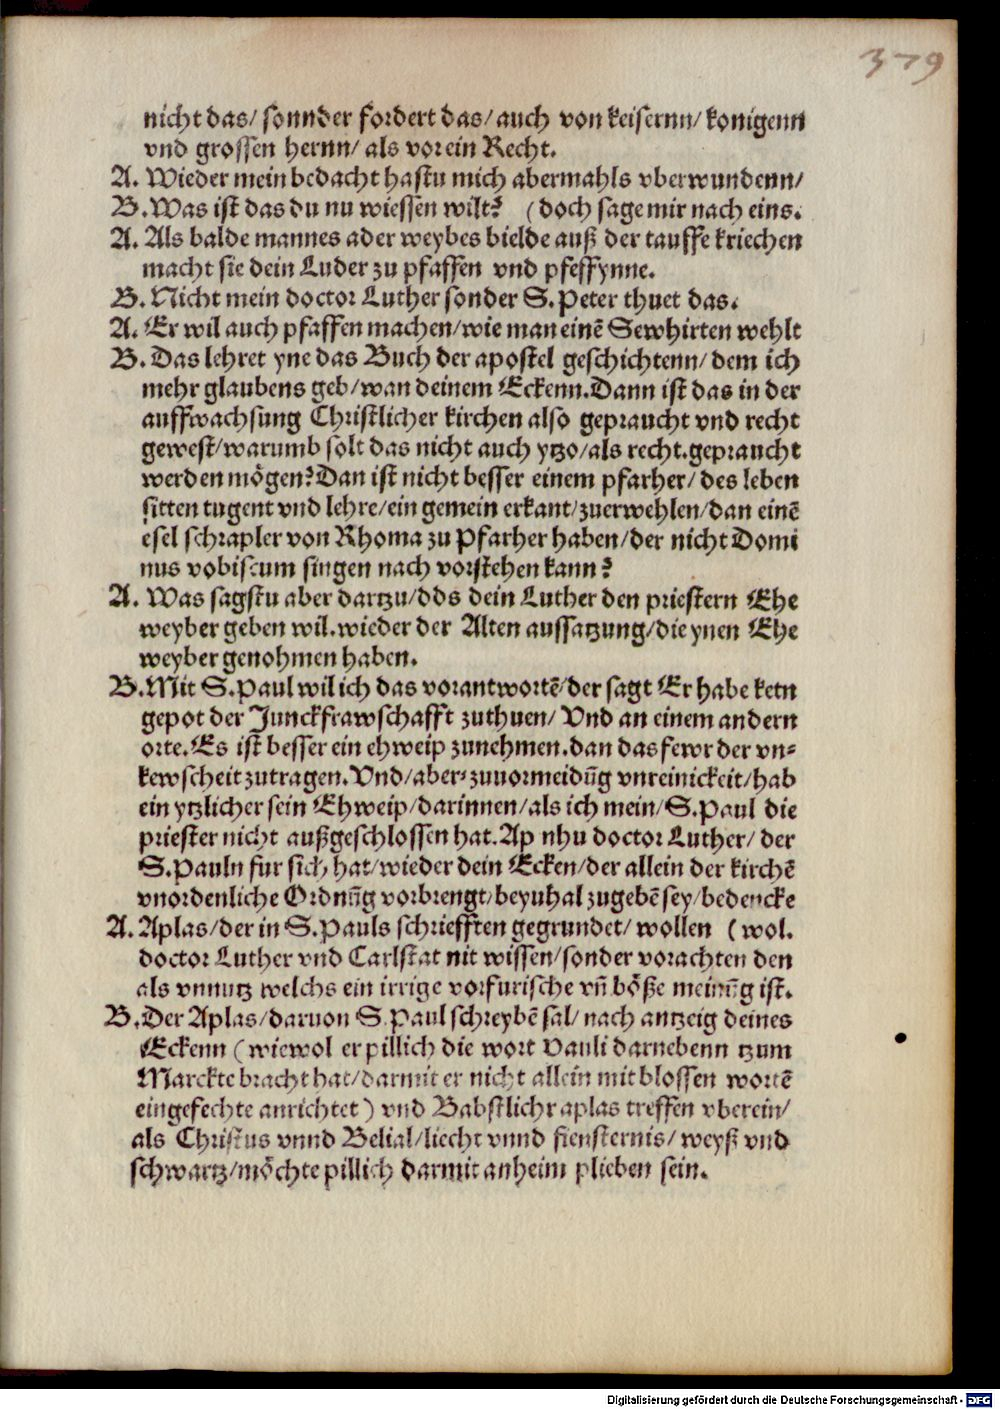 379
nicht das/ sonnder fordert das/ auch von keisernn/ konigenn
vnd grossen hernn/ als vor ein Recht.
A. Wieder mein bedacht hastu mich abermahls vberwundenn/
B. Was ist das du nu wiessen wilt? (doch sage mir nach eins.
A. Als balde mannes ader weybes bielde auß der tauffe kriechen
macht sie dein Luder zu pfaffen vnd pfeffynne.
B. Nicht mein doctor Luther sonder S. Peter thuet das.
A. Er wil auch pfaffen machen/ wie man einē Sewhirten wehlt
B. Das lehret yne das Buch der apostel geschichtenn/ dem ich
mehr glaubens geb/ wan deinem Eckenn. Dann ist das in der
auffwachsung Christlicher kirchen also gepraucht vnd recht
gewest/ warumb solt das nicht auch ytzo/ als recht. gepraucht
werden mögen? Dan ist nicht besser einem pfarher/ des leben
sitten tugent vnd lehre/ ein gemein erkant/ zuerwehlen/ dan einē
esel schrapler von Rhoma zu Pfarher haben/ der nicht Domi
nus vobiscum singen nach vorstehen kann?
A. Was sagstu aber dartzu/ dds dein Luther den priestern Ehe
weyber geben wil. wieder der Alten aussatzung/ die ynen Ehe
weyber genohmen haben.
B. Mit S. Paul wil ich das vorantwortē/ der sagt Er habe kein
gepot der Junckfrawschafft zuthuen/ Vnd an einem andern
orte. Es ist besser ein ehweip zunehmen. dan das fewr der vn-
kewscheit zutragen. Vnd/ aber- zuuormeidūg vnreinickeit/ hab
ein ytzlicher sein Ehweip/ darinnen/ als ich mein/ S. Paul die
priester nicht außgeschlossen hat. Ap nhu doctor Luther/ der
S. Pauln fur sich hat/ wieder dein Ecken/ der allein der kirchē
vnordenliche Ordnūg vorbrengt/ beyuhal zugebē sey/ bedencke
A. Aplas/ der in S. Pauls schriefften gegrundet/ wollen (wol.
doctor Luther vnd Carlstat nit wissen/ sonder vorachten den
als vnnutz welchs ein irrige vorfurische vñ böße meinūg ist.
B. Der Aplas/ daruon S. Paul schreybē sal/ nach antzeig deines
Eckenn (wiewol er pillich die wort Pauli darnebenn tzum
Marckte bracht hat/ darmit er nicht allein mit blossen wortē
eingefechte anrichtet) vnd Babstlichr aplas treffen vberein/
als Christus vnnd Belial/ liecht vnnd fiensternis/ weyß vnd
schwartz/ möchte pillich darmit anheim plieben sein.
Digitalisierung gefördert durch die Deutsche Forschungsgemeinschaft - DFG